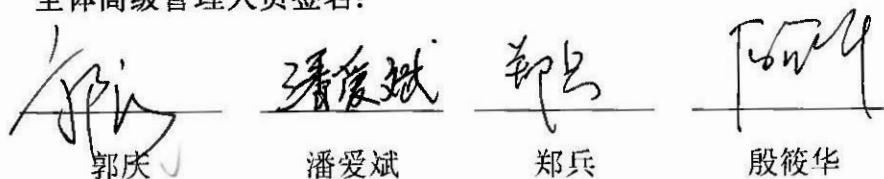 全体高级管理人员签名：
郭庆 潘爱斌 郑兵 殷筱华
郭庆 潘爱斌 郑兵 殷筱华